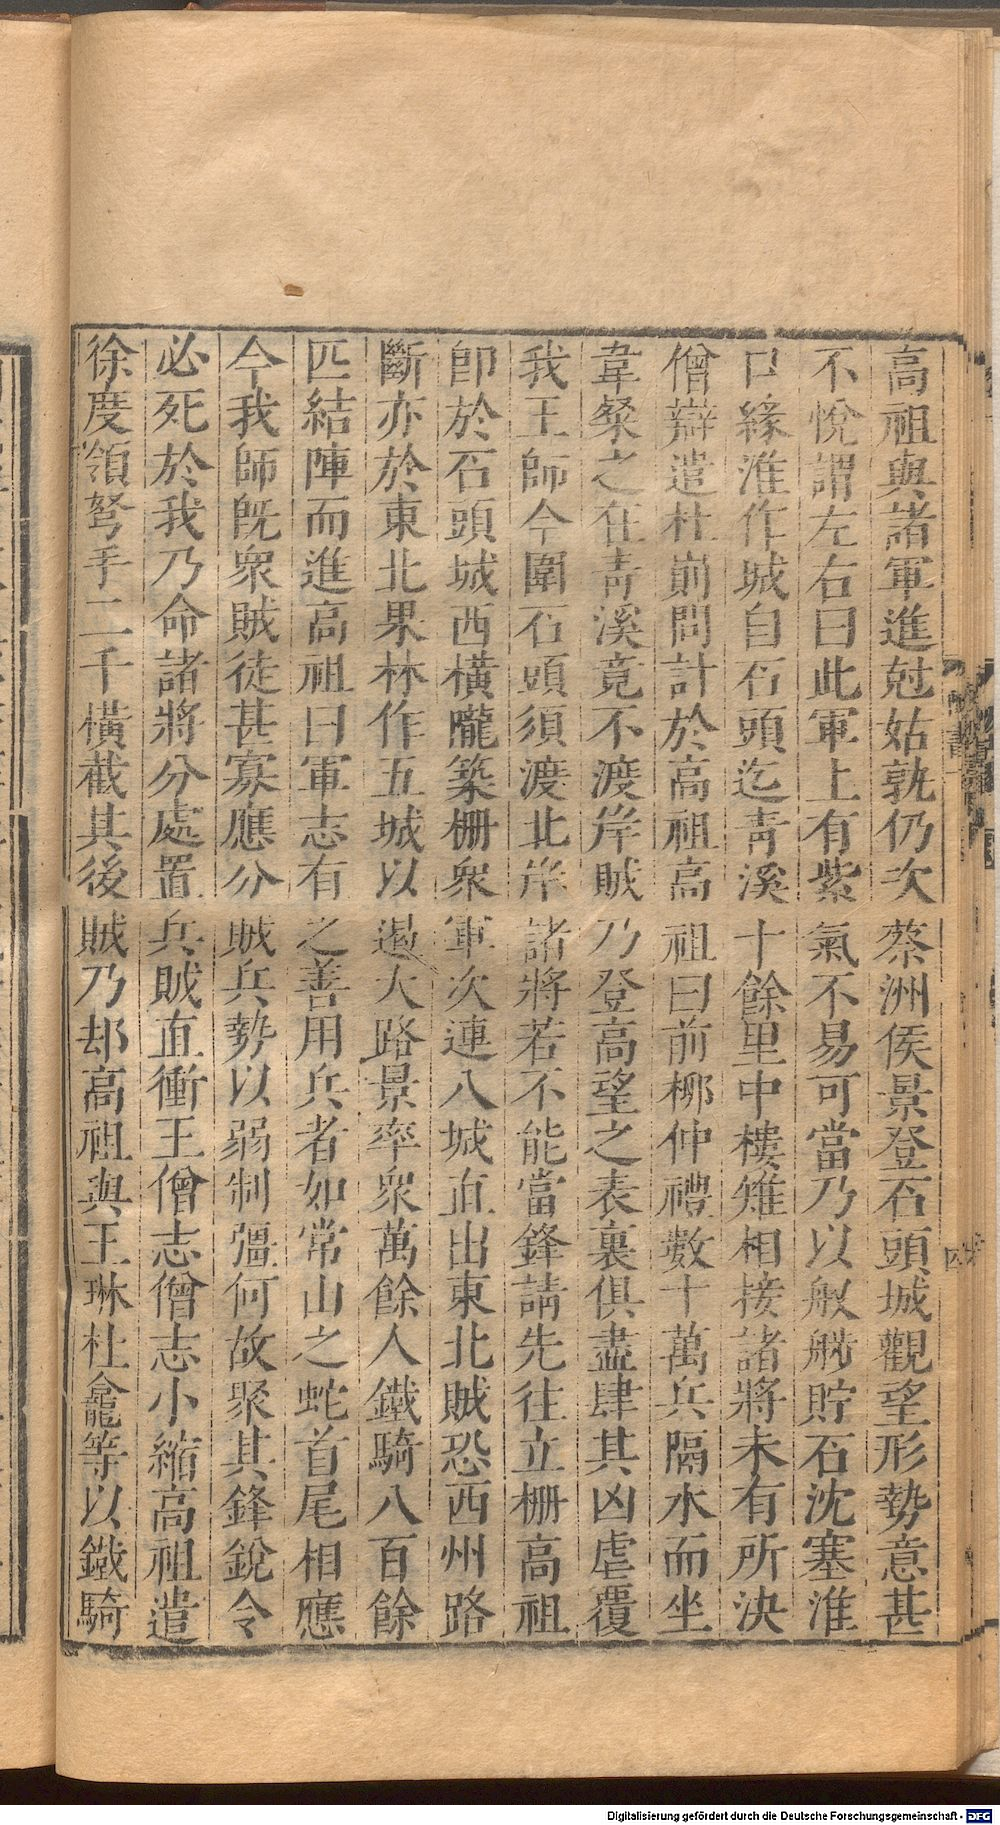 高祖與諸軍進尅姑孰仍次蔡洲侯景登石頭城觀望形勢意甚
不悅謂左右曰此軍上有紫氣不易可當乃以舣䑹貯石沈塞淮
口緣淮作城自石頭迄青溪十餘里中樓雉相接諸將未有所決
僧辯遣杜崱問計於高祖高祖曰前柳仲禮數十萬兵隔水而坐
韋粲之在青溪竟不渡岸賊乃登高望之表裏俱盡肆其凶虐覆
我王師今圍石頭須渡北岸諸將若不能當鋒請先往立柵高祖
卽於石頭城西橫隴築柵衆軍次連八城直出東北賊恐西州路
斷亦於東北果林作五城以遏大路景率衆萬餘人鐵騎八百餘
匹結陣而進高祖曰軍志有之善用兵者如常山之蛇首尾相應
今我師旣衆賊徒甚寡應分賊兵勢以弱制彊何故聚其鋒銳令
必死於我乃命諸將分處置兵賊直衝王僧志僧志小縮高祖遣
徐度領弩手二千橫截其後賊乃却高祖與王琳杜龕等以鐵騎
Digitalisierung gefördert durch die Deutsche Forschungsgemeinschaft - DFG